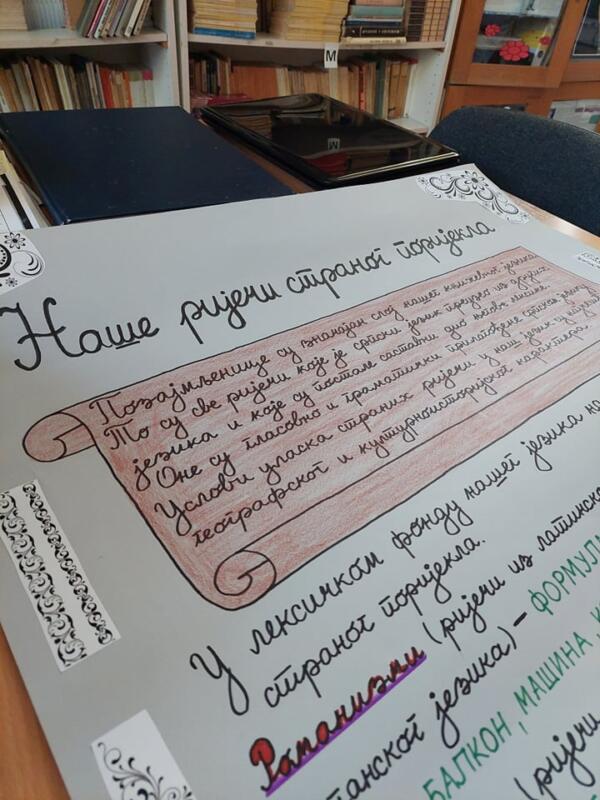 Наше ријечи страног поријекла
Позајмљенице су значајан слој нашег књижевног језика.
То су све ријечи које је српски језик преузео из других
језика и које су постале саставни дио његове лексике.
Оне су гласовно и граматички прилагођене
Услови уласка страних ријечи у наш језик су
географског и културноисторијског карактера.
У лексичком фонду нашег језика
страног поријекла.
Романизми (ријечи из
језика) - ФОРМУЛА
БАЛКОН, МАШИНА, К
(ријечи
M